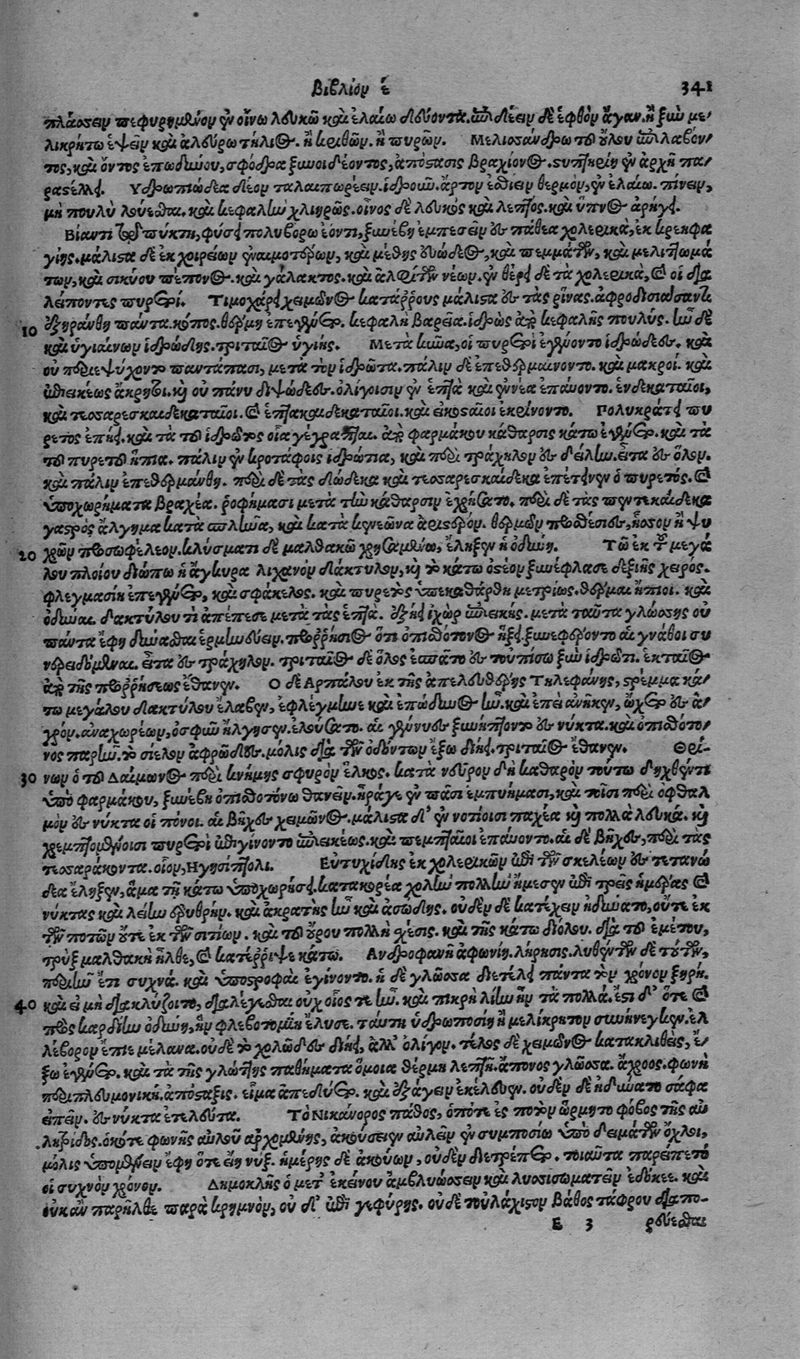 βιβλίον ε 341
πλάσσειν πεφυρημένον ἐν οἴνω λευκῶ καὶ ἐλαίω ἀλεύοντα. δὲ ἑφθὸν ἄγαν. ἢ ξὺν με-
λικρήτω ἑψεῖν καὶ ἀλεύρω τήλιος. ἢ κριθῶν. ἢ πυρῶν. Μελισάνδρω τοῦ οὔλου ἐπιλαβόν-
τος, καὶ ὄντος ἐπωδύνου, σφόδρα ξυνοιδέοντος, ἀπόστασις βραχίονος. στυπτηρίη ἐν ἀρχῆ πα-
ραστέλλει. Υδρωπιώδεα δέον ταλαιπωρέειν. ἱδροῦν. ἄρτον ἐσθίειν θερμὸν, ἐν ἐλαίω. πίνειν,
μὴ πουλὺ λούεσθαι. καὶ κεφαλὴν χλιηρῶς. οἶνος δὲ λευκὸς καὶ λεπτὸς. καὶ ὕπνος ἀρήγει.
Βίαντι τῶ πύκτη, φύσει πολυβόρω ἐόντι, ξυνέβη ἐμπεσεῖν ἐς πάθεα χολερικὰ, ἐκ κρεηφα
γίης. μάλιστα δὲ ἐκ χοιρείων ἐναιμοτέρων, καὶ μέθης εὐώδεος, καὶ πεμμάτων, καὶ μελιτωμά
των, καὶ σικύου πέπονος. καὶ γάλακτος. καὶ ἀλφίτων νέων. ἐν θέρει δὲ τὰ χολερικὰ, καὶ οἱ δια
λείποντες πυρετοί. Τιμοχάρει χειμῶνος κατάρρους μάλιστα ἐς τὰς ῥῖνας. ἀφροδισιάσαντι
10 ἐξηράνθη πάντα. κόπος. θέρμη ἐπεγένετο. κεφαλὴ βαρεῖα. ἱδρὼς ἀπὸ κεφαλῆς πουλύς. ἦν δὲ
καὶ ὑγιαίνων ἱδρώδης. τριταῖος ὑγιής. Μετὰ κύνα, οἱ πυρετοὶ ἐγένοντο ἱδρώδεες. καὶ
οὐ περιεψύχοντο παντάπασι, μετὰ τὸν ἱδρῶτα. πάλιν δὲ ἐπεθερμαίνοντο. καὶ μακροί. καὶ
ἐπιεικέως ἄκρητοι. καὶ οὐ πάνυ διψώδεες. ὀλίγοισιν ἐν ἑπτὰ καὶ ἐννέα ἐπαύοντο. ἑνδεκαταῖοι,
καὶ τεσσαρεσκαιδεκαταῖοι. καὶ ἑπτακαιδεκαταῖοι. καὶ εἰκοσταῖοι ἐκρίνοντο. Πολυκράτει πυ
ρετὸς ἐπῆν. καὶ τὰ τοῦ ἱδρῶτος οἷα γέγραπται. ἀπὸ φαρμάκου κάθαρσις κάτω ἐγένετο. καὶ τὰ
τοῦ πυρετοῦ ἤπια. πάλιν ἐν κροτάφοις ἱδρώτια, καὶ περὶ τράχηλον ἐς δείλην. εἶτα ἐς ὅλον.
καὶ πάλιν ἐπεθερμάνθη. περὶ δὲ τὰς δώδεκα καὶ τεσσαρεσκαίδεκα ἐπέτεινεν ὁ πυρετός. καὶ
ὑποχωρήματα βραχέα. ῥοφήμασι μετὰ τὴν κάθαρσιν ἐχρῆτο. περὶ δὲ τὰς πεντεκαίδεκα
γαστρὸς ἄλγημα κατὰ σπλῆνα, καὶ κατὰ κενεῶνα ἀριστερόν. θερμῶν προσθέσιες, ἧσσον ἢ ψυ
20 χρῶν προσωφέλεον. κλύσματι δὲ μαλθακῶ χρησαμένω, ἔληξεν ἡ ὀδύνη. Τῶ ἐκ τοῦ μεγά
λου πλοίου διόπω ἡ ἄγκυρα λιχανὸν δάκτυλον, καὶ τὸ κάτω ὀστέον ξυνέφλασε δεξιῆς χειρός.
φλεγμασίη ἐπεγένετο, καὶ σφάκελος. καὶ πυρετὸς ὑπεκαθάρθη μετρίως. θέρμαι ἤπιοι. καὶ
ὀδύναι. δακτύλου τὶ ἀπέπεσε μετὰ τὰς ἑπτά. ἐξῆει ἰχὼρ ἐπιεικής. μετὰ ταῦτα γλώσσης οὐ
πάντα ἔφη δύνασθαι ἑρμηνεύειν. πρόρρησις ὅτι ὀπισθότονος ἥξει. ξυνεφέροντο αἱ γνάθοι συ
νερειδόμεναι. εἶτα ἐς τράχηλον. τριταῖος δὲ ὅλος ἐσπᾶτο ἐς τοὐπίσω ξὺν ἱδρῶτι. ἑκταῖος
ἀπὸ τῆς προρρήσεως ἔθανεν. Ο δὲ Αρπάλου ἐκ τῆς ἀπελευθέρης Τηλεφάνης, στρέμμα κά
τω μεγάλου δακτύλου ἔλαβεν, ἐφλέγμηνε καὶ ἐπώδυνος ἦν. καὶ ἐπεὶ ἀνῆκεν, ὤχετο ἐς ἀ
γρόν. ἀναχωρέων, ὀσφὺν ἤλγησεν. ἐλούσατο. αἱ γένυες ξυνήγοντο ἐς νύκτα. καὶ ὀπισθότο
νος παρῆν. τὸ σίελον ἀφρῶδες. μόλις διὰ τῶν ὀδόντων ἔξω διῄει. τριταῖος ἔθανεν. Θρί-
30 νων ὁ τοῦ Δαίμωνος περὶ κνήμης σφυρὸν ἕλκος. κατὰ νεῦρον ἤδη καθαρὸν τούτω δηχθέντι
ὑπὸ φαρμάκου, ξυνέβη ὀπισθοτόνω θανεῖν. ἦράγε ἐν πᾶσι ἐμπυήμασι, καὶ τοῖσι περὶ ὀφθαλ
μὸν ἐς νύκτα οἱ πόνοι. αἱ βῆχες χειμῶνος. μάλιστα δ' ἐν νοτίοισι παχέα καὶ πολλὰ λευκά. καὶ
χρεμπτομένοισι πυρετοὶ ἐπιγίνοντο ἐπιεικέως. καὶ πεμπταῖοι ἐπαύοντο. αἱ δὲ βῆχες, περὶ τὰς
τεσσαράκοντα. οἷον, Ηγησιπόλι. Εὐτυχίδης ἐκ χολερικῶν ἐπὶ τῶν σκελέων ἐς τετανώ
δεα ἔληξεν, ἅμα τῆ κάτω ὑποχωρήσει. κατακορέα χολὴν πολλὴν ἤμεσεν ἐπὶ τρεῖς ἡμέρας καὶ
νύκτας καὶ λείην ἐρυθρήν. καὶ ἀκρατὴς ἦν καὶ ἀσώδης. οὐδὲν δὲ κατέχειν ἠδύνατο, οὔτε ἐκ
τῶν ποτῶν οὔτε ἐκ τῶν σιτίων. καὶ τοῦ οὔρου πολλὴ σχέσις. καὶ τῆς κάτω διόδου. διὰ τοῦ ἐμέτου,
τρὺξ μαλθακὴ ἦλθε, καὶ κατέρριψε κάτω. Ανδροφανῆ ἀφωνίη. λήρησις. λυθέντων δὲ τούτων,
περιῆν ἔτι συχνά. καὶ ὑποστροφαὶ ἐγίνοντο. ἡ δὲ γλῶσσα διετέλει πάντα τὸν χρόνον ξηρή.
40 καὶ εἰ μὴ διακλύζοιτο, διαλέγεσθαι οὐχ οἷός τε ἦν. καὶ πικρὴ λίην ἦν τὰ πολλά. ἔστι δ' ὅτε καὶ
πρὸς καρδίην ὀδύνη, ἣν φλεβοτομίη ἔλυσε. ταύτη ὑδροποσίη ἢ μελίκρητον συνήνεγκεν. ἑλ
λέβορον ἔπιε μέλανα. οὐδὲ τὸ χολῶδες διῄει, ἀλλ' ὀλίγον. τέλος δὲ χειμῶνος κατακλιθεὶς, ἔ-
ξω ἐγένετο. καὶ τὰ τῆς γλώττης παθήματα ὅμοια θέρμη λεπτή. ἄπονος γλῶσσα. ἄχροος. φωνὴ
περιπλευμονική. ἀπόσταξις. εἷμα ἀπεδύετο. καὶ ἐξάγειν ἐκέλευεν. οὐδὲν δὲ ἠδύνατο σάφα
εἰπεῖν. ἐς νύκτα ἐτελεύτα. Τὸ Νικάνορος πάθος, ὁπότε ἐς ποτὸν ὥρμητο φόβος τῆς αὐ
λητρίδος. ὁκότε φωνῆς αὐλοῦ ἀρχομένης, ἀκούσειεν αὐλεῖν ἐν συμποσίω ὑπὸ δειμάτων ὄχλοι,
μόλις ὑπομένειν ἔφη ὅτε εἴη νύξ. ἡμέρης δὲ ἀκούων, οὐδὲν διετρέπετο. τοιαῦτα παρείπετό
οἱ συχνὸν χρόνον. Δημοκλῆς ὁ μετ' ἐκείνου ἀμβλυώσσειν καὶ λυσισωματεῖν ἐδόκει. καὶ
οὐκ ἂν παρῆλθε παρὰ κρημνὸν, οὐ δ' ἐπὶ γεφύρης. οὐδὲ τοὐλάχιστον βάθος τάφρου διαπο-
E 3 ρεύεσθαι